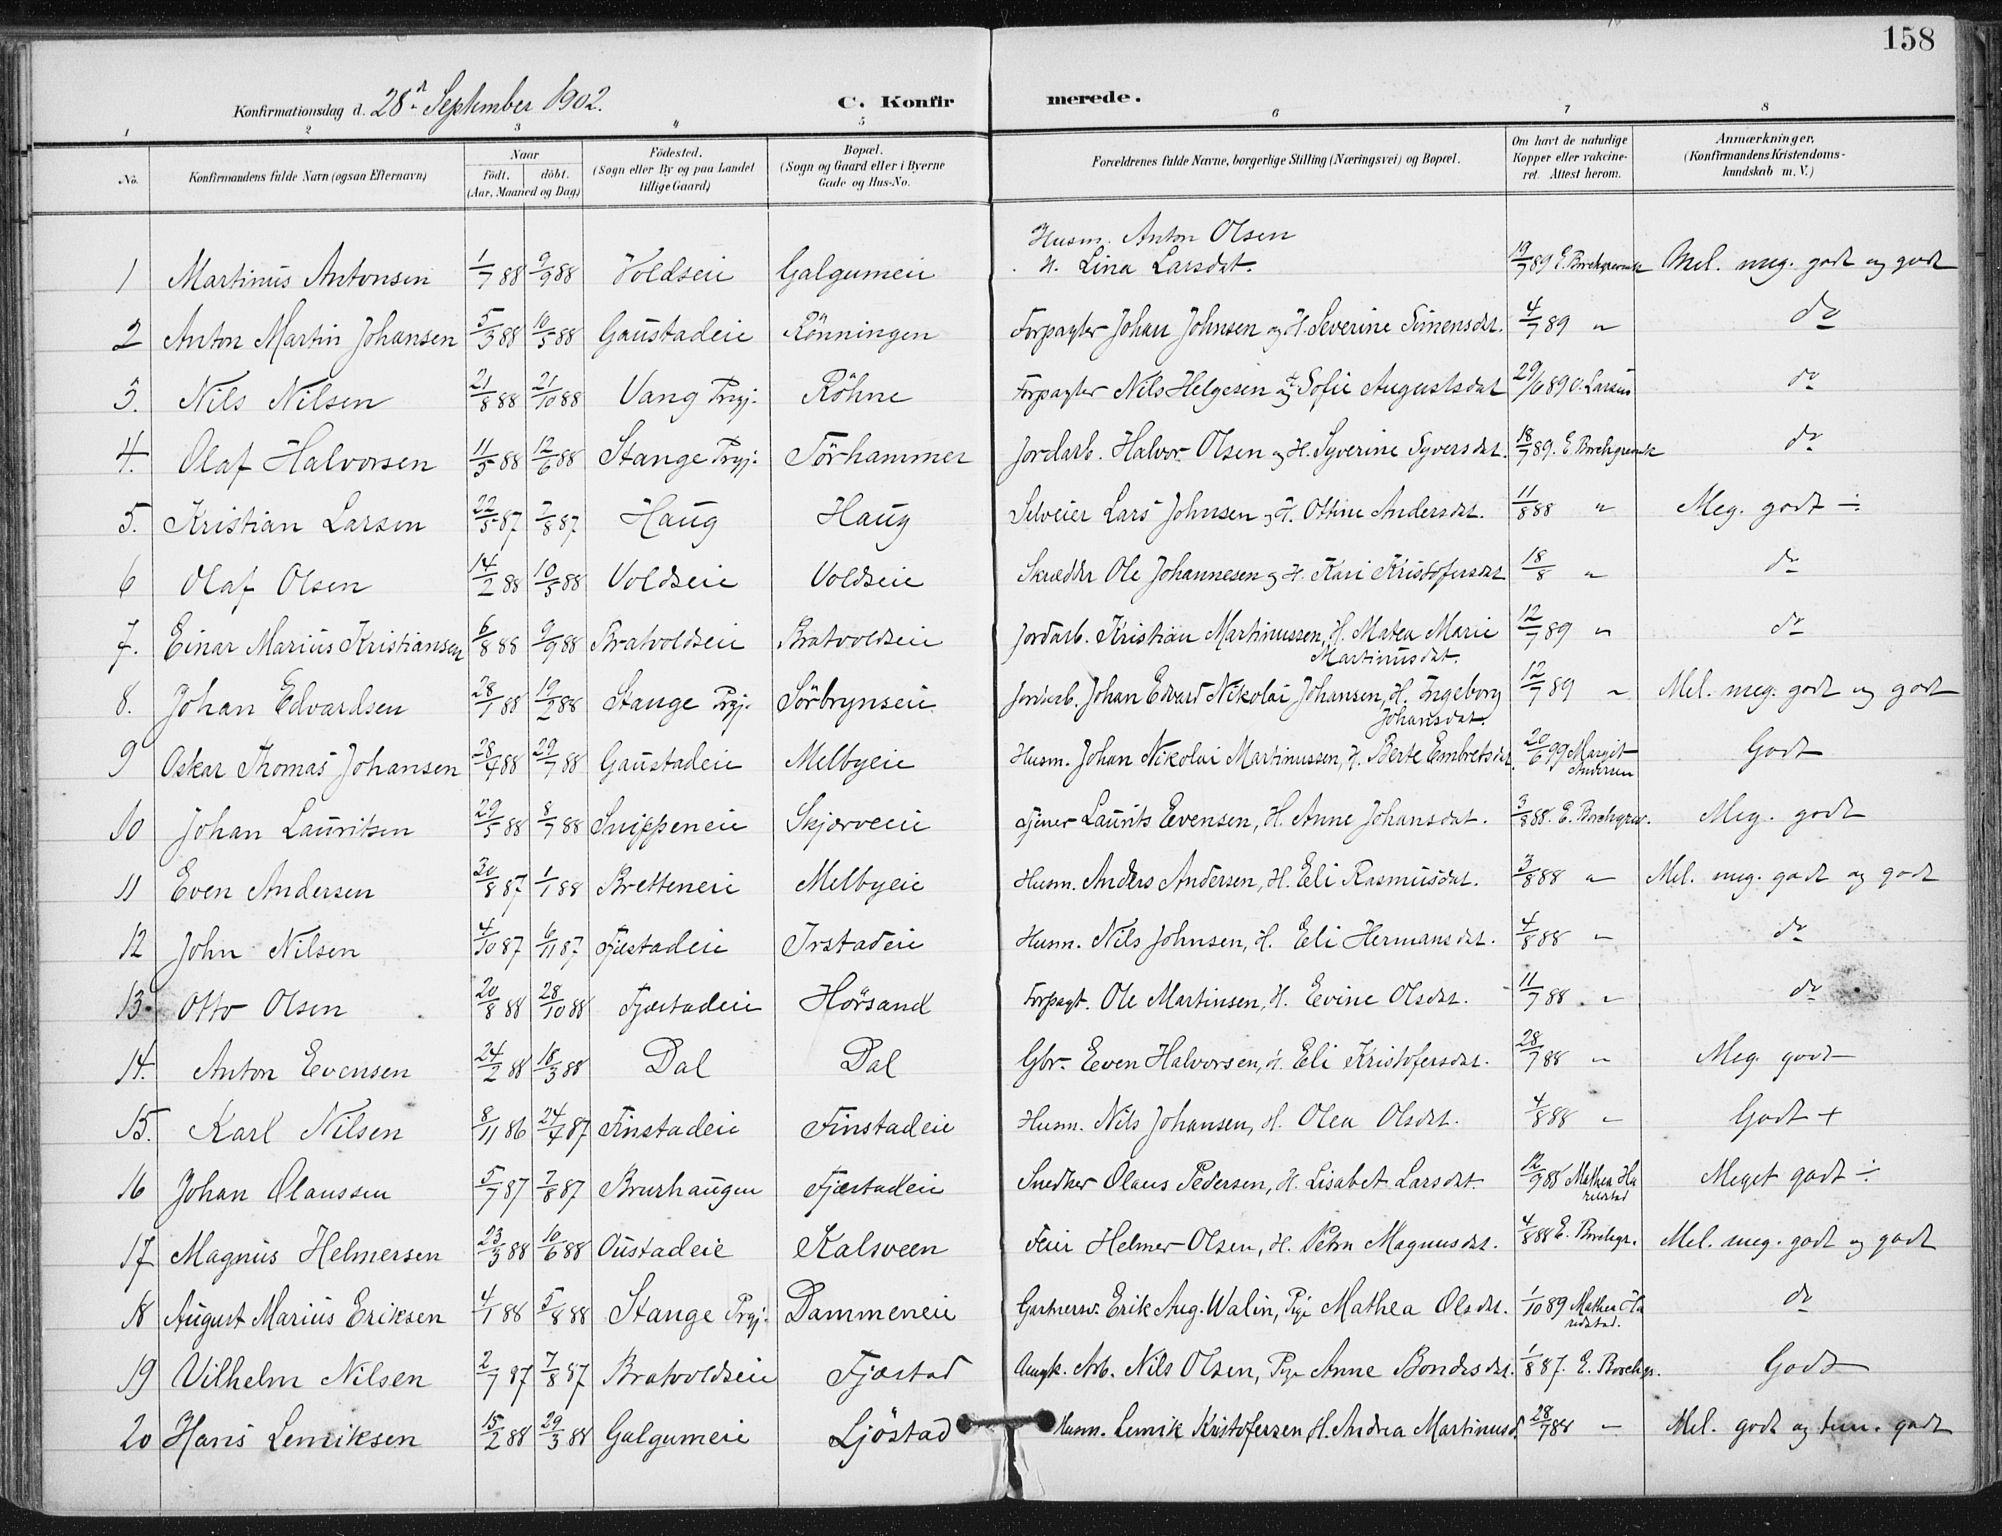 158
Konfirmationsdag d. 28d September 1902. C. Konfirmerede.
1 2 3 4 5 6 7 8
No. Konfirmandens fulde Navn (ogsaa Efternavn) Naar födt. döbt. (Aar, Maaned og Dag) Födested. (Sogn eller By og paa Landet tillige Gaard) Bopæl. (Sogn og Gaard eller i Byerne Gade og Hus-No. Forældrenes fulde Navne, borgerlige Stilling (Næringsvei) og Bopæl. Om havt de naturlige Kopper eller vakcineret. Attest herom. Anmærkninger, (Konfirmandens Kristendomskundskab m. V.)
1 Martinus Antonsen 1/7 88 9/9 88 Voldseie Galgumeie Husm. Anton Olsen H. Lina Larsdat. 19/7 89 E. Borchgrevink Mel. meg. godt og godt
2 Anton Martin Johansen 5/3 88 10/5 88 Gaustadeie Rönningen Forpagter Johan Johnsen og H. Severine Simensdat. 4/7 89 " do
3. Nils Nilsen 21/8 88 21/10 88 Vang Prgj: Röhne Forpagter Nils Helgesen og H. Sofie Augustsdat 29/6 89 O. Larsen do
4. Olaf Halvorsen 11/5 88 12/6 88 Stange Prgj: Törhammer Jordarb. Halvor Olsen og H. Syverine Syversdat. 18/7 89. E. Borchgrevink do
5. Kristian Larsen 22/5 87 7/8 87 Haug Haug Selveier Lars Johnsen og H. Oltine Andersdat. 11/8 88 " Meg. godt ÷
6 Olaf Olsen 14/2 88 10/5 88 Voldseie Voldseie Skrædder Ole Johannesen og H. Kari Kristofersdat 18/8 " do
7. Einar Marius Kristiansen 6/8 88 9/9 88 Bratvoldseie Bratvoldseie Jordarb. Kristian Martinussen, H. Matea Marie Martinusdat. 12/7 89 " do
8. Johan Edvardsen 28/1 88 19/2 88 Stange Prgj. Sörbrynseie Jordarb. Johan Edvard Nikolai Johansen, H. Ingeborg Johansdat. 12/7 89 " Mel. meg. godt og godt
9 Oskar Thomas Johansen 28/4 88 29/7 88 Gaustadeie Melbyeie Husm. Johan Nikolai Martinussen, H. Berte Embretsdat. 20/6 99 Margit Andersen Godt
10 Johan Lauritsen 29/5 88 8/7 88 Snippeneie Skjærveeie Tjener Laurits Evensen, H. Anne Johansdat. 3/8 88. E. Borchgrev. Meg. godt
11 Even Andersen 30/8 87 1/1 88 Bretteneie Melbyeie Husm. Anders Andersen, H. Eli Rasmusdat. 3/8 88 " Mel. meg. godt og godt
12 John Nilsen 4/10 87 6/11 87 Fjestadeie Irstadeie Husm. Nils Johnsen, H. Eli Hermansdat. 4/8 88 " do
13. Otto Olsen 20/8 88 28/10 88 Fjæstadeie Hörsand Forpagt. Ole Martinsen, H. Evine Olsdat. 11/7 88 " do
14. Anton Evensen 24/2 88 18/3 88 Dal Dal Gbr. Even Halvorsen, H. Eli Kristofersdat. 28/7 88 " Meg. godt
15. Karl Nilsen 8/11 86 24/4 87 Finstadeie Finstadeie Husm. Nils Johansen, H. Olea Olsdat. 4/8 88 " Godt +
16 Johan Olaussen 5/7 87 7/8 87 Brurhaugen Fjæstadeie Snedker Olaus Pedersen, H. Lisabet Larsdat. 12/9 88 Mathea Haralstad Meget godt ÷
17 Magnus Helmersen 23/3 88 10/6 88 Oustadeie Kalsveen Feier Helmer Olsen, H. Petra Magnusdat. 4/8 88 E. Borchgr. Mel. meg. godt og godt
18 August Marius Eriksen 4/1 88 5/8 88 Stange Prgj. Dammeneie Gartnersv. Erik Aug. Walin, Pige Mathea Olsdat. 1/10 89 do
19 Vilhelm Nilsen 2/7 87 7/8 87 Bratvoldseie Fjæstad Ungk. Arb. Nils Olsen, Pige Anne Bondesdat. 1/8 87. E. Borchgr. Godt
20 Hans Lemiksen 15/2 88 29/3 88 Galgumeie Ljöstad Husm. Lemik Kristofersen, H. Andrea Martinusd. 28/7 88 " Mel. godt og tem. godt